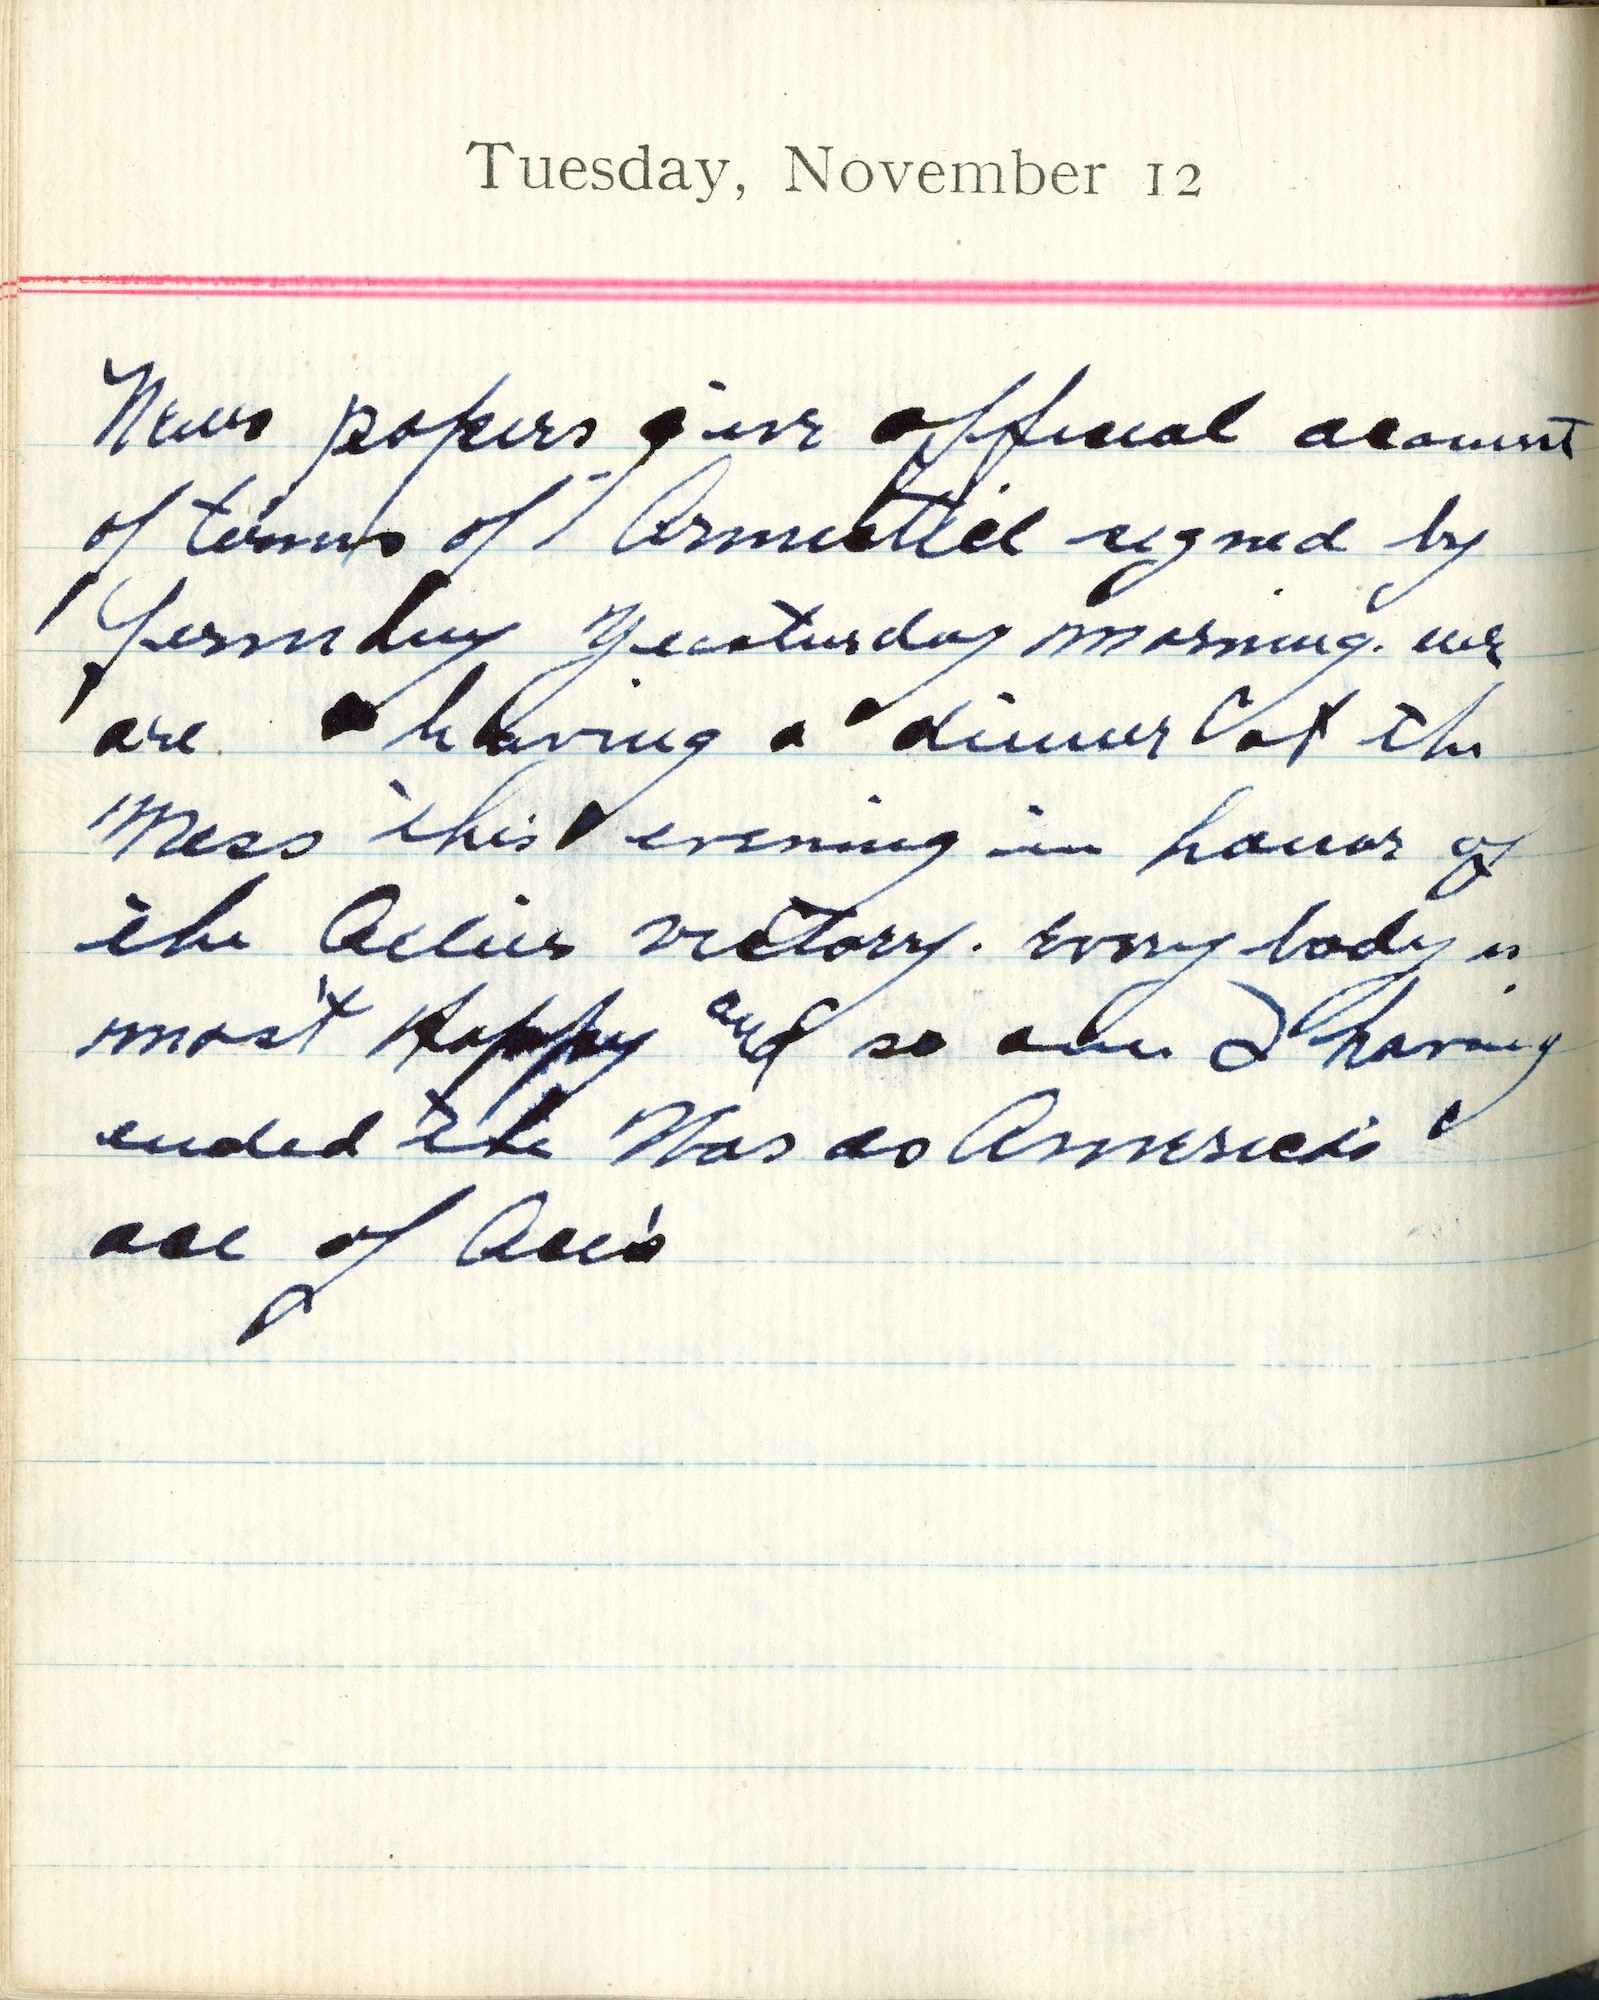 Tuesday, November 12
News papers give official account
of terms of Armisticd signed by
Germany Yeasturday morning. we
are having a dinner at the
Mess this evening in honor of
the Allies victory. Every body is
most Happy and so am I having
ended the War as America's
ace of Aces